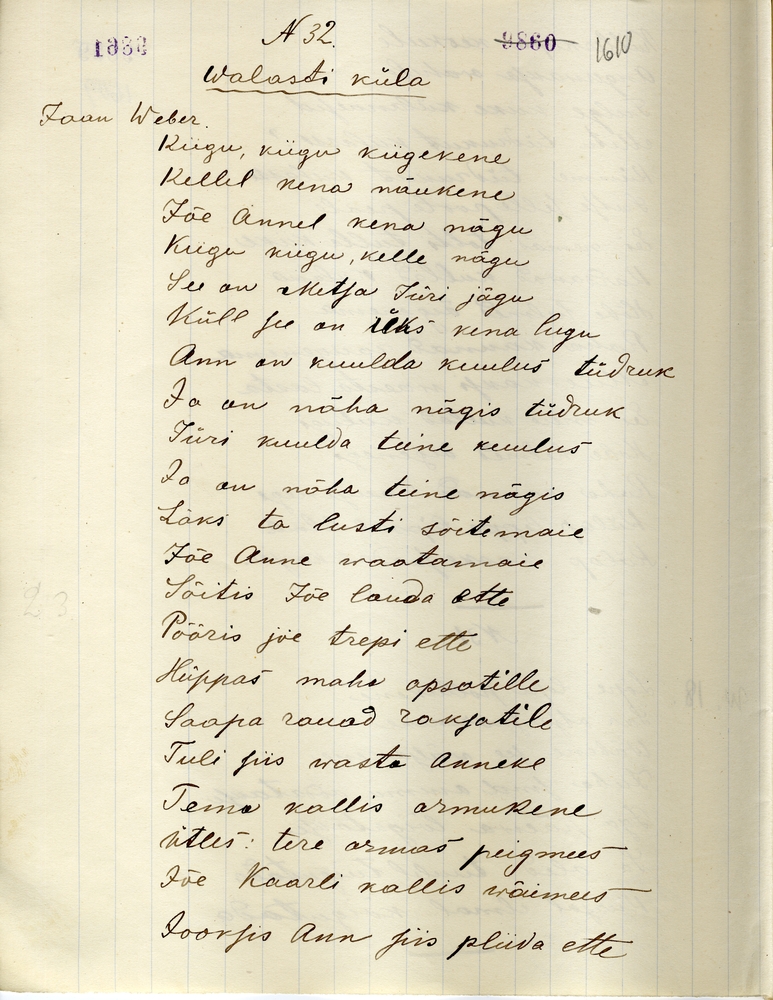 N 32.
9860
1610
Walasti küla
Jaan Weber.
Kiigu, kiigu kiigekene
Kellel kena näukene
Jõe Annel kena nägu
Kiigu kiigu, kelle nägu
See on Metsa Jüri jägu
Küll see on üks kena lugu
Ann on kuulda kuulus tüdruk
Ja on näha nägis tüdruk
Jüri kuulda teine kuulus
Ja on näha teine nägis
Läks ta lusti sõitemaie
Jõe Anne waatamaie
Sõitis Jõe lauda ette
Pööris jõe trepi ette
Hüppas maha opsatille
Saapa rauad raksatile
Tuli siis wasta Anneke
Tema kallis armukene
ütles: tere armas peigmees
Jõe Kaarli kallis wäimees
Jooksis Ann siis pliida ette